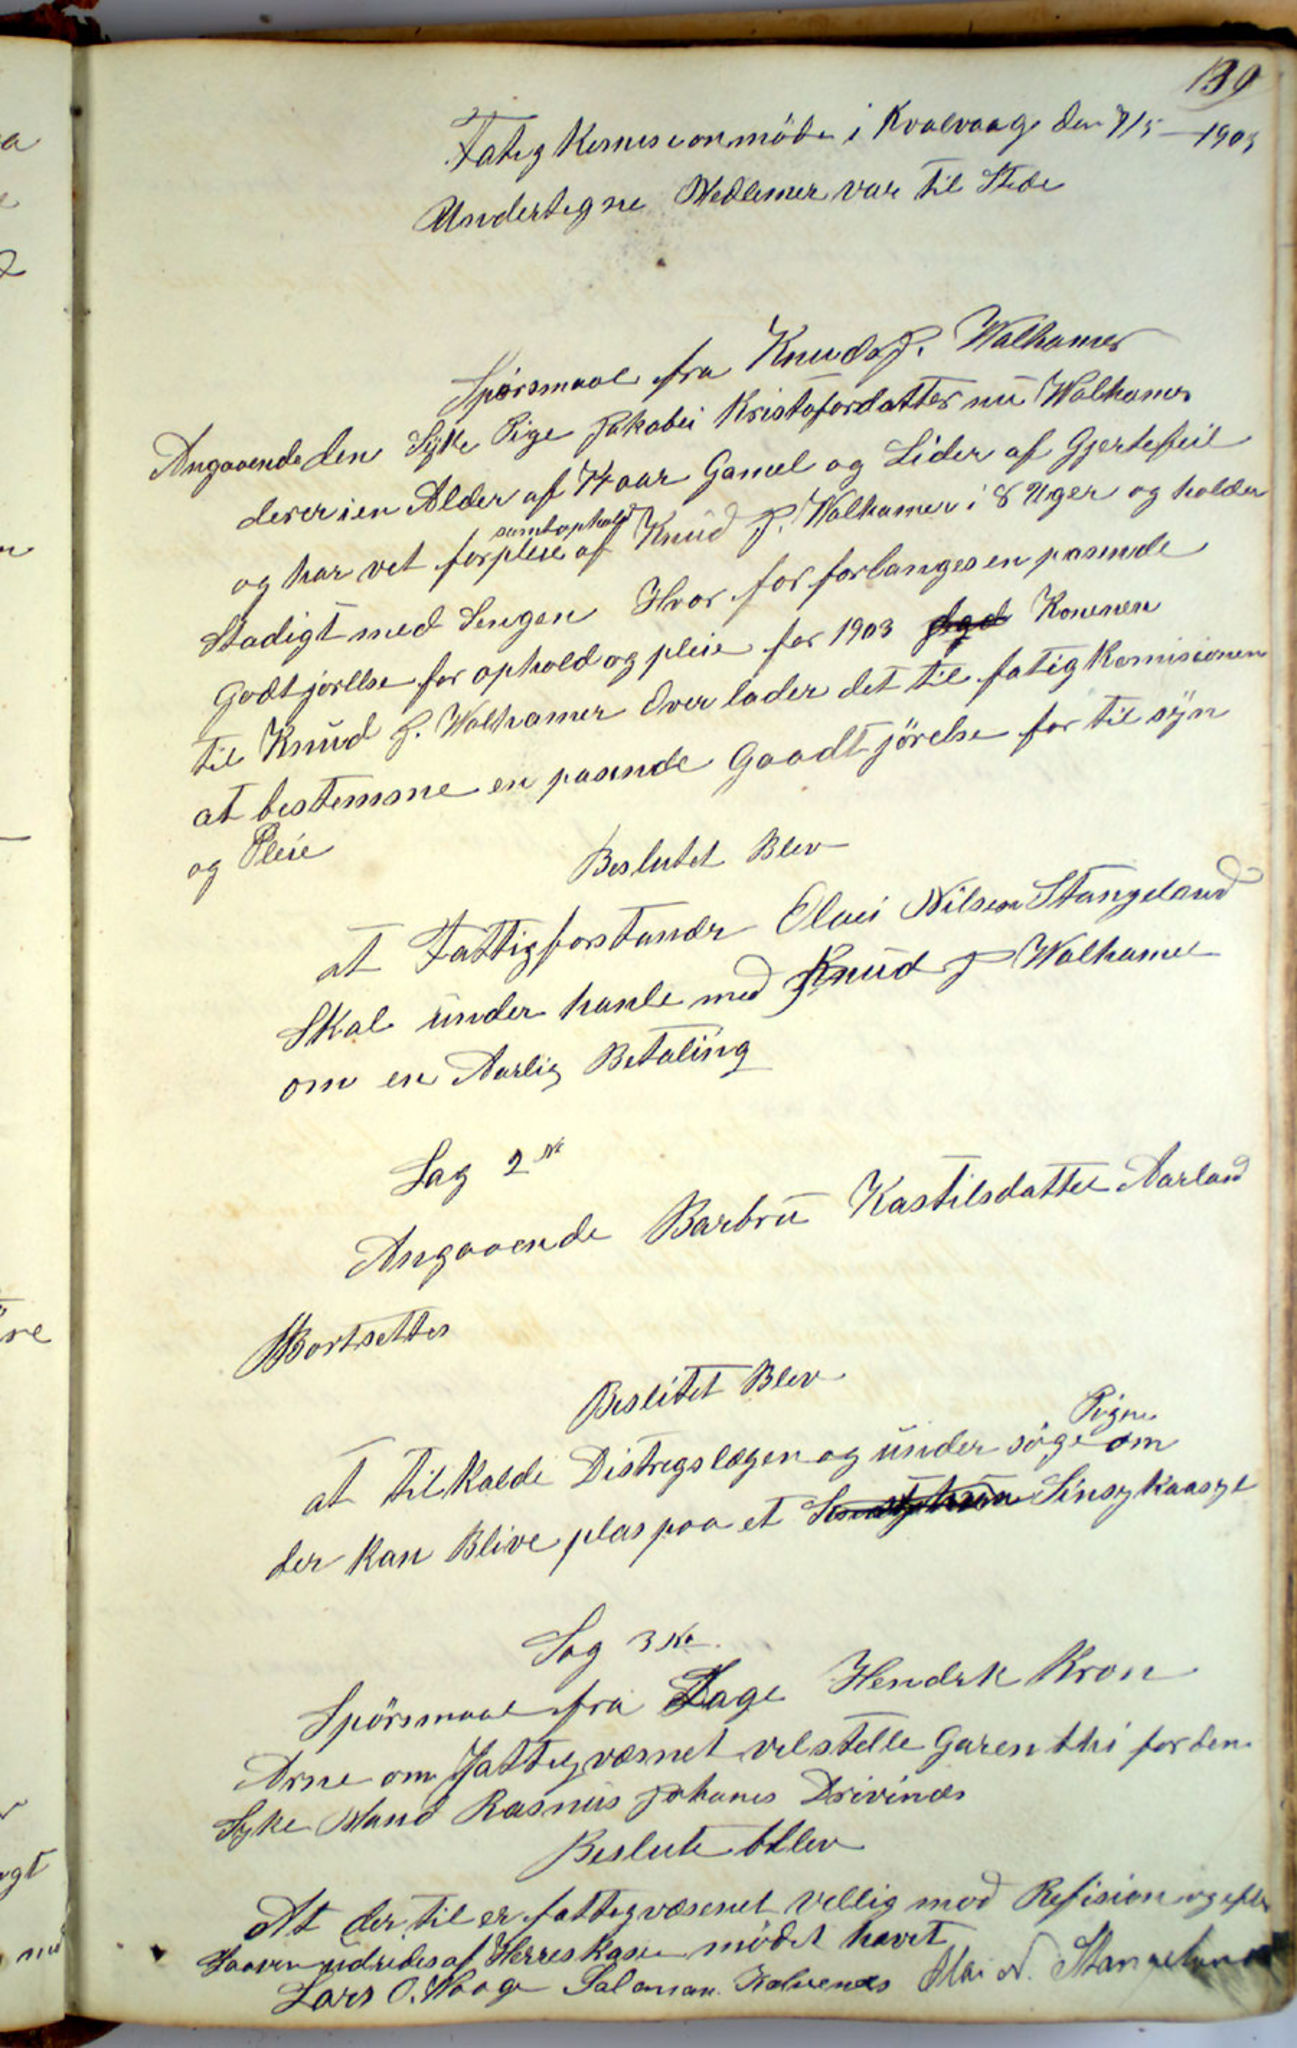 139
Fatig Komisionmöde i Kvalvaag den 7/5 – 1903
Undertegne Medlemer var til Stede
Spörsmaal fra Knud J. Walhamer
Angaaende den Syke Pige Jakobei Kristofordatter nu Walhamer
der er i en Alder af 74 aar Gamel og Lider af Gjertefeil
samt ophold
og har vet forpleie af Knud J. Walhamer i 8 Uger og holder
Stadigt med Sengen Hvor for forlanges en pasende
Godtjörllse for ophold og pleie for 1903 Konenen
til Knud J. Walhamer Over lader det til fatig Komisionen
at bestemme en pasende Gaadtjörelse for til syn
og Pleie
Beslutet Blev
at Fattigforstander Olai Nilsen Stangeland
Skal under hanle med Knud J Walhamer
om en Aarlig Betaling
Sag 2 No
Angaaende Barbru Kastilsdatter Aarland
Bortsettes
Beslutet Blev
Pigen
at tilkalde Distregslægen og under söge om
der kan Blive plas paa et Sinsykaasyl
Sag 3 No.
Spörsmaal fra Lage Hendrk Kron
Arne om Fattigvæsnet vel stelle Garenthi for den
Syke Mand Rasmus Johanes Drivines
Beslute blev
At der til er fattigvæsenet vellig mod Refision og efter
Laaven udredes af Herreskasen mödet hævet
Lars O. Waage Salaman Kalvenes Olai N. Stangeland